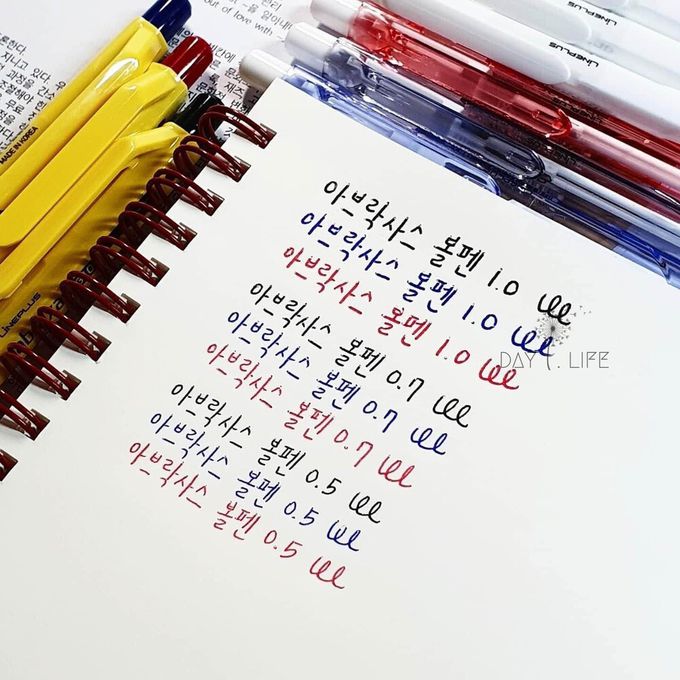 out of love with
MADE IN KOREA
LINEPLUS
LINEPLUS
LINEPLUS
LINEPLUS
아브락사스 볼펜 1.0 ele
아브락사스 볼펜 1.0 ele
아브락사스 볼펜 1.0 ele
아브락사스 볼펜 0.7 ele
아브락사스 볼펜 0.7 ele
아브락사스 볼펜 0.7 ele
아브락사스 볼펜 0.5 ele
아브락사스 볼펜 0.5 ele
아브락사스 볼펜 0.5 ele
DAY t. LIFE